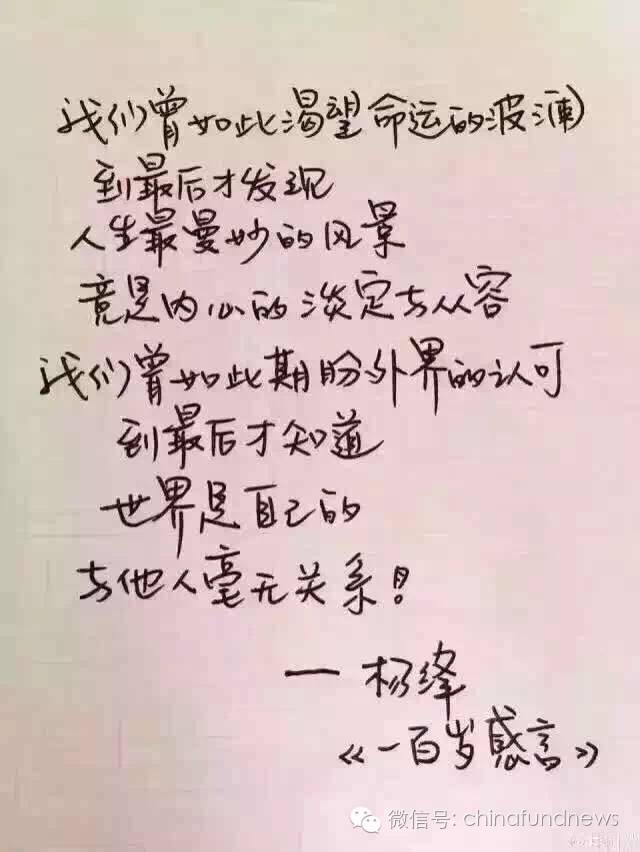 我们曾如此渴望命运的波澜
到最后才发现
人生最曼妙的风景
竟是内心的淡定与从容
我们曾如此期盼外界的认可
到最后才知道
世界是自己的
与他人毫无关系!
— 杨绛
《一百岁感言》
微信号: chinafundnews